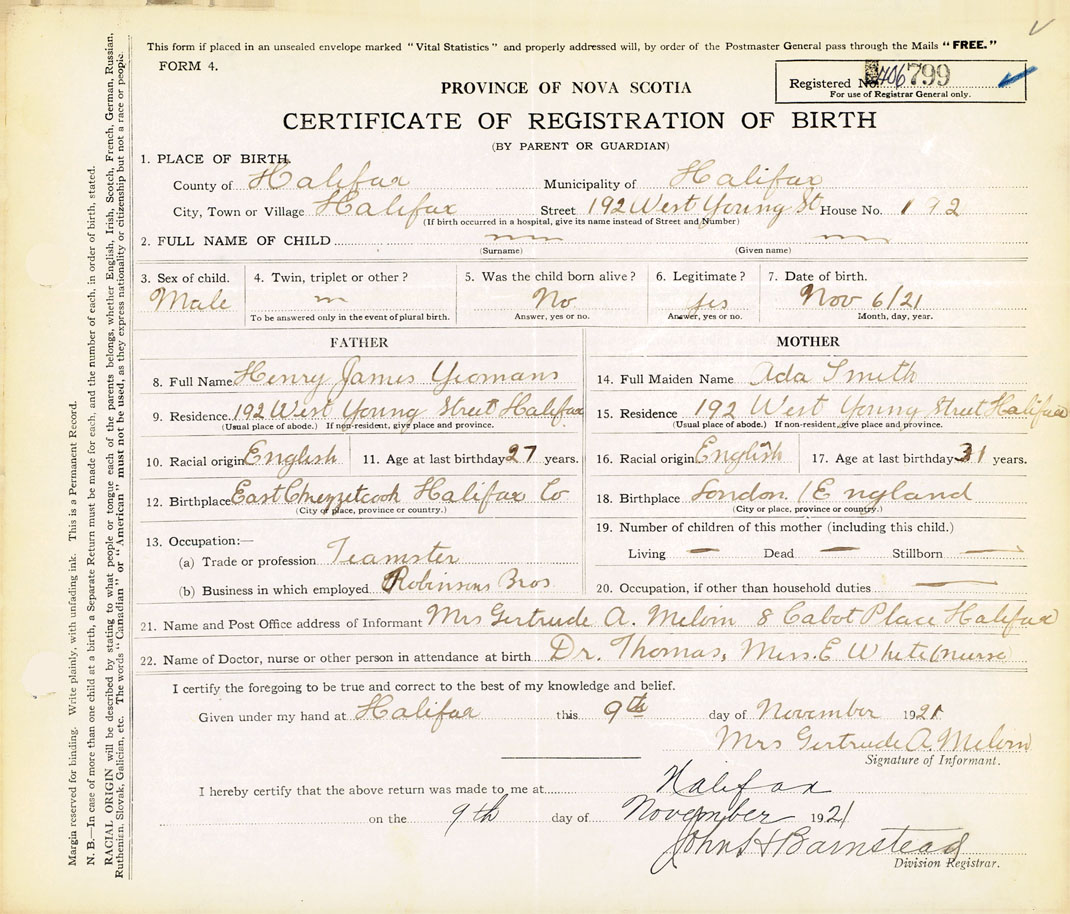 This form if placed in an unsealed envelope marked "Vital Statistics" and properly addressed will, by order of the Postmaster General pass through the Mails "FREE."
FORM 4.
Registered No. 799
For use of Registrar General only.
PROVINCE OF NOVA SCOTIA
CERTIFICATE OF REGISTRATION OF BIRTH
(BY PARENT OR GUARDIAN)
1. PLACE OF BIRTH.
County of Halifax Municipality of Halifax
City, Town or Village Halifax Street 192 West Young St House No. 192
(If birth occurred in a hospital, give its name instead of Street and Number)
2. FULL NAME OF CHILD
(Surname) (Given name)
3. Sex of child. 4. Twin, triplet or other? 5. Was the child born alive? 6. Legitimate? 7. Date of birth.
Male No yes Nov 6/21
To be answered only in the event of plural birth. Answer, yes or no. Answer, yes or no. Month, day, year.
FATHER
8. Full Name Henry James Yeomans
9. Residence. 192 West Young Street Halifax
(Usual place of abode.) If non-resident, give place and province.
10. Racial origin English 11. Age at last birthday 27 years.
12. Birthplace East Chezzetcook Halifax Co
(City or place, province or country.)
13. Occupation:—
(a) Trade or profession Teamster
(b) Business in which employed Robinsons Bros
MOTHER
14. Full Maiden Name Ada Smith
15. Residence 192 West Young Street Halifax
(Usual place of abode.) If non-resident, give place and province.
16. Racial origin English 17. Age at last birthday 31 years.
18. Birthplace London / England
(City or place, province or country.)
19. Number of children of this mother (including this child.)
Living — Dead — Stillborn —
20. Occupation, if other than household duties —
21. Name and Post Office address of Informant Mrs Gertrude A. Melvin 8 Cabot Place Halifax
22. Name of Doctor, nurse or other person in attendance at birth Dr. Thomas, Mrs. E White (nurse
I certify the foregoing to be true and correct to the best of my knowledge and belief.
Given under my hand at Halifax this 9th day of November 1921
Mrs Gertrude A. Melvin
Signature of Informant.
I hereby certify that the above return was made to me at Halifax
on the 9th day of November 1921
John H Barnstead
Division Registrar.
Margin reserved for binding. Write plainly, with unfading ink. This is a Permanent Record.
N. B.—In case of more than one child at a birth, a Separate Return must be made for each, and the number of each, in order of birth, stated.
RACIAL ORIGIN will be described by stating to what people or tongue each of the parents belongs, whether English, Irish, Scotch, French, German, Russian,
Ruthenian, Slovak, Galician, etc. The words "Canadian" or "American" must not be used, as they express nationality or citizenship but not a race or people.